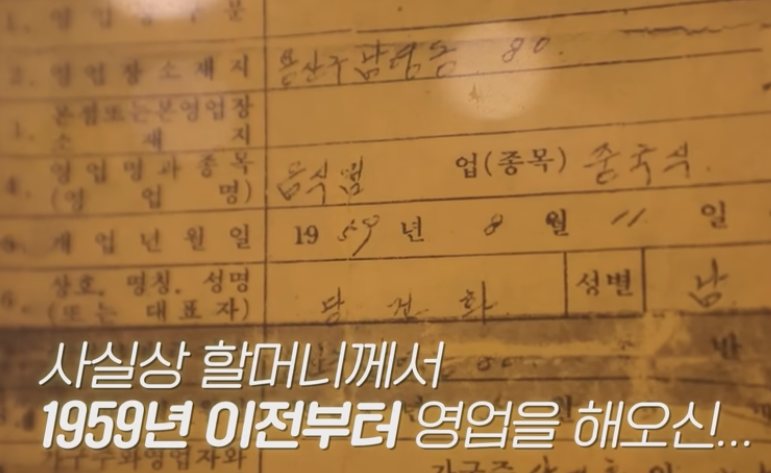 2. 영업장소재지 용산구 남영동 80.
3. 본점또는본영업장
소재지
4. 영업명과종목 음식점 업(종목) 중국식.
(영업명)
5. 개업년월일 1959년 8월 11일
6. 상호, 명칭, 성명 성별 남
(또는 대표자)
사실상 할머니께서
1959년 이전부터 영업을 해오신...